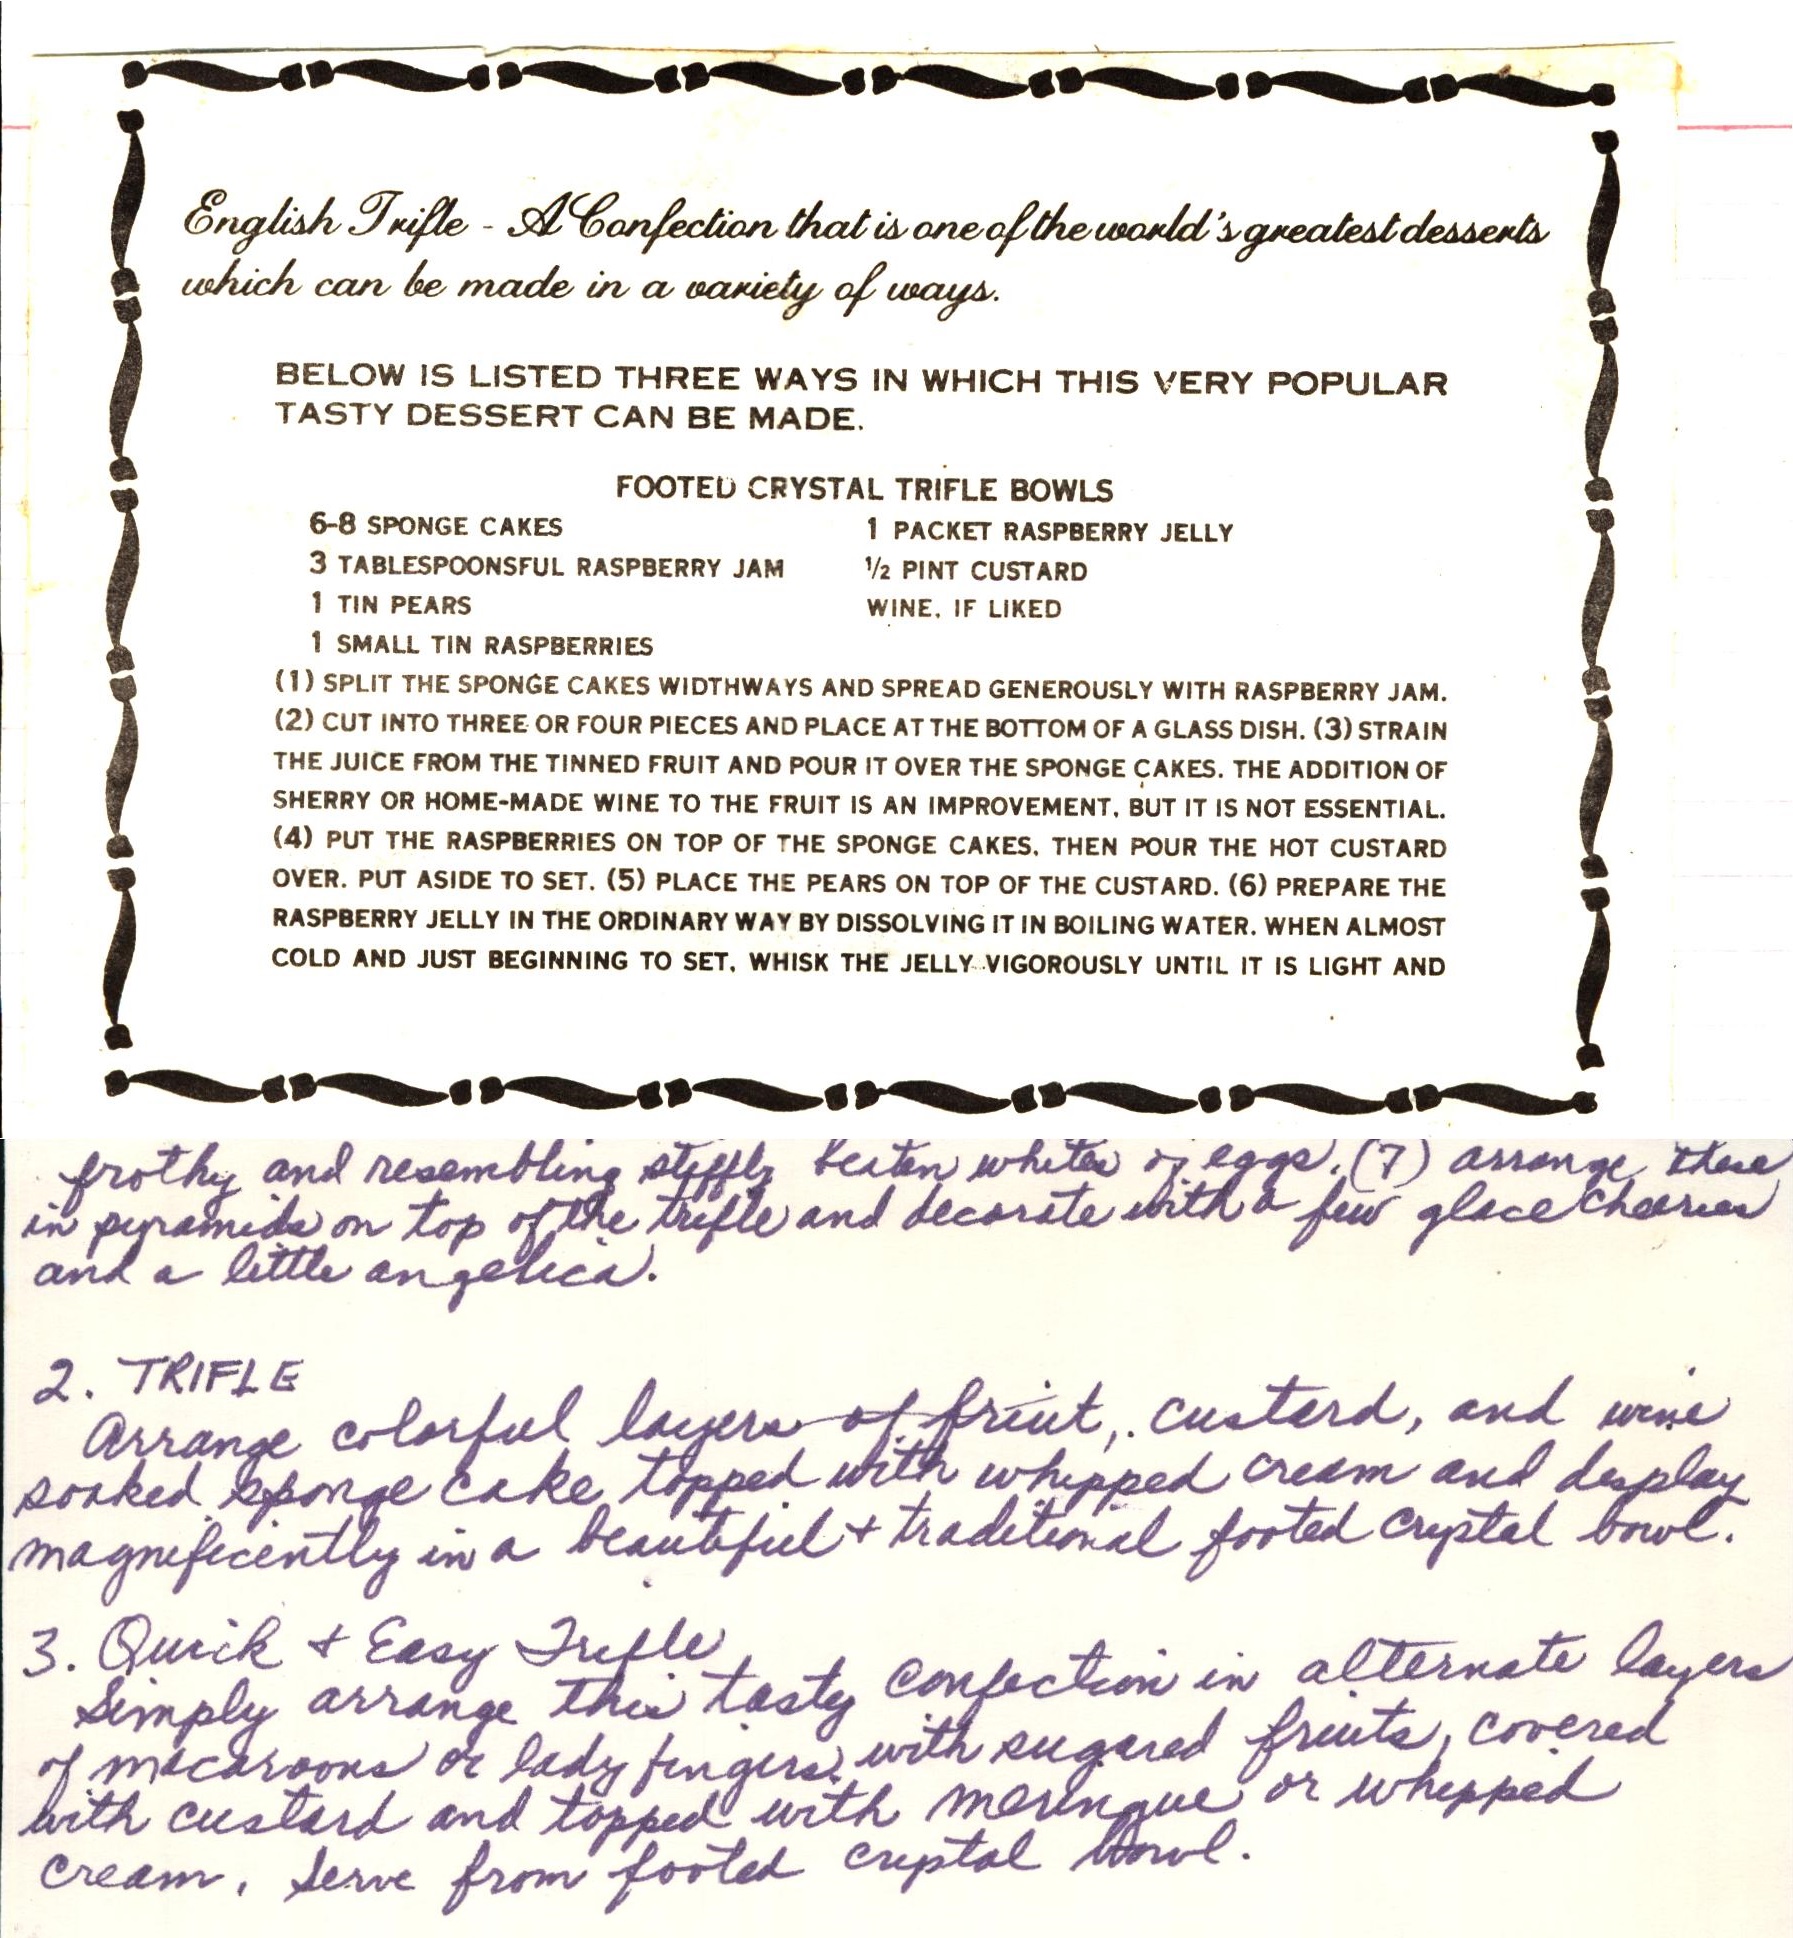 English Trifle - A Confection that is one of the world's greatest desserts
which can be made in a variety of ways.
BELOW IS LISTED THREE WAYS IN WHICH THIS VERY POPULAR
TASTY DESSERT CAN BE MADE.
FOOTED CRYSTAL TRIFLE BOWLS
6-8 SPONGE CAKES
3 TABLESPOONSFUL RASPBERRY JAM
1 TIN PEARS
1 SMALL TIN RASPBERRIES
1 PACKET RASPBERRY JELLY
½ PINT CUSTARD
WINE, IF LIKED
(1) SPLIT THE SPONGE CAKES WIDTHWAYS AND SPREAD GENEROUSLY WITH RASPBERRY JAM.
(2) CUT INTO THREE OR FOUR PIECES AND PLACE AT THE BOTTOM OF A GLASS DISH. (3) STRAIN
THE JUICE FROM THE TINNED FRUIT AND POUR IT OVER THE SPONGE CAKES. THE ADDITION OF
SHERRY OR HOME-MADE WINE TO THE FRUIT IS AN IMPROVEMENT, BUT IT IS NOT ESSENTIAL.
(4) PUT THE RASPBERRIES ON TOP OF THE SPONGE CAKES, THEN POUR THE HOT CUSTARD
OVER. PUT ASIDE TO SET. (5) PLACE THE PEARS ON TOP OF THE CUSTARD. (6) PREPARE THE
RASPBERRY JELLY IN THE ORDINARY WAY BY DISSOLVING IT IN BOILING WATER. WHEN ALMOST
COLD AND JUST BEGINNING TO SET, WHISK THE JELLY VIGOROUSLY UNTIL IT IS LIGHT AND
frothy and resembling stiffly beaten whites of eggs. (7) arrange these
in pyramids on top of the trifle and decorate with a few glace cheeries
and a little angelica.
2. TRIFLE
Arrange colorful layers of friut, custard, and wine
soaked sponge cake topped with whipped cream and display
magnificently in a beautiful + traditional footed crystal bowl.
3. Quick + Easy Trifle
Simply arrange this tasty confection in alternate layers
of macaroons or lady fingers with sugared friuts, covered
with custard and topped with meringue or whipped
cream. Serve from footed crystal bowl.